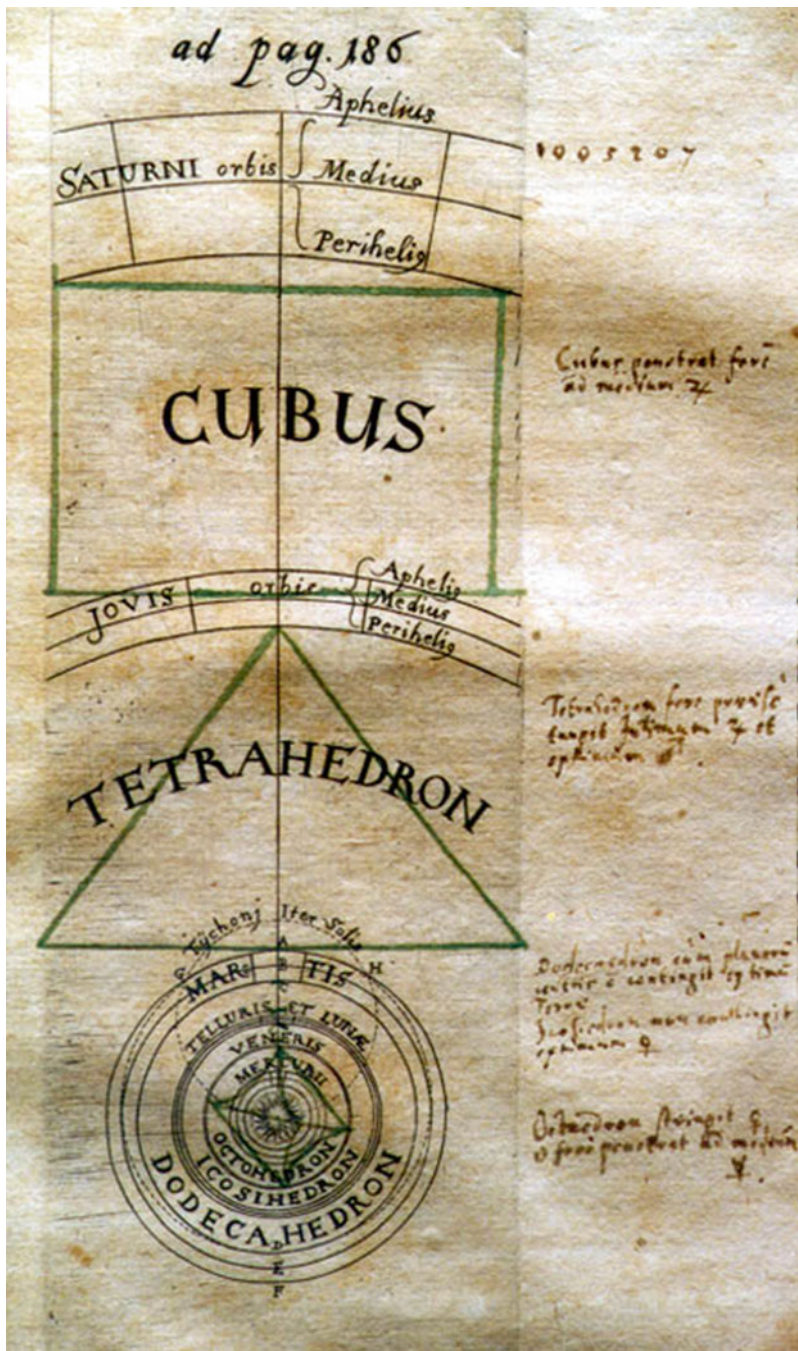 ad pag. 186
Aphelius
SATURNI orbis
Medius
Perihelis
1005207
CUBUS
Cubus penetrat fere
ad medium ♃
JOVIS orbis
Aphelis
Medius
Perihelis
Tetrahedron fere
♃ et
TETRAHEDRON
Tychonj Iter Solis
G H
A
B
MARTIS
TELLURIS ET LUNÆ
VENERIS
MERCURII
OCTOHEDRON
ICOSIHEDRON
DODECAHEDRON
D
E
F
Dodecaedron cum
contingit
Icosiedron non contingit
♀
Octaedron stringit
fere penetrat ad medium